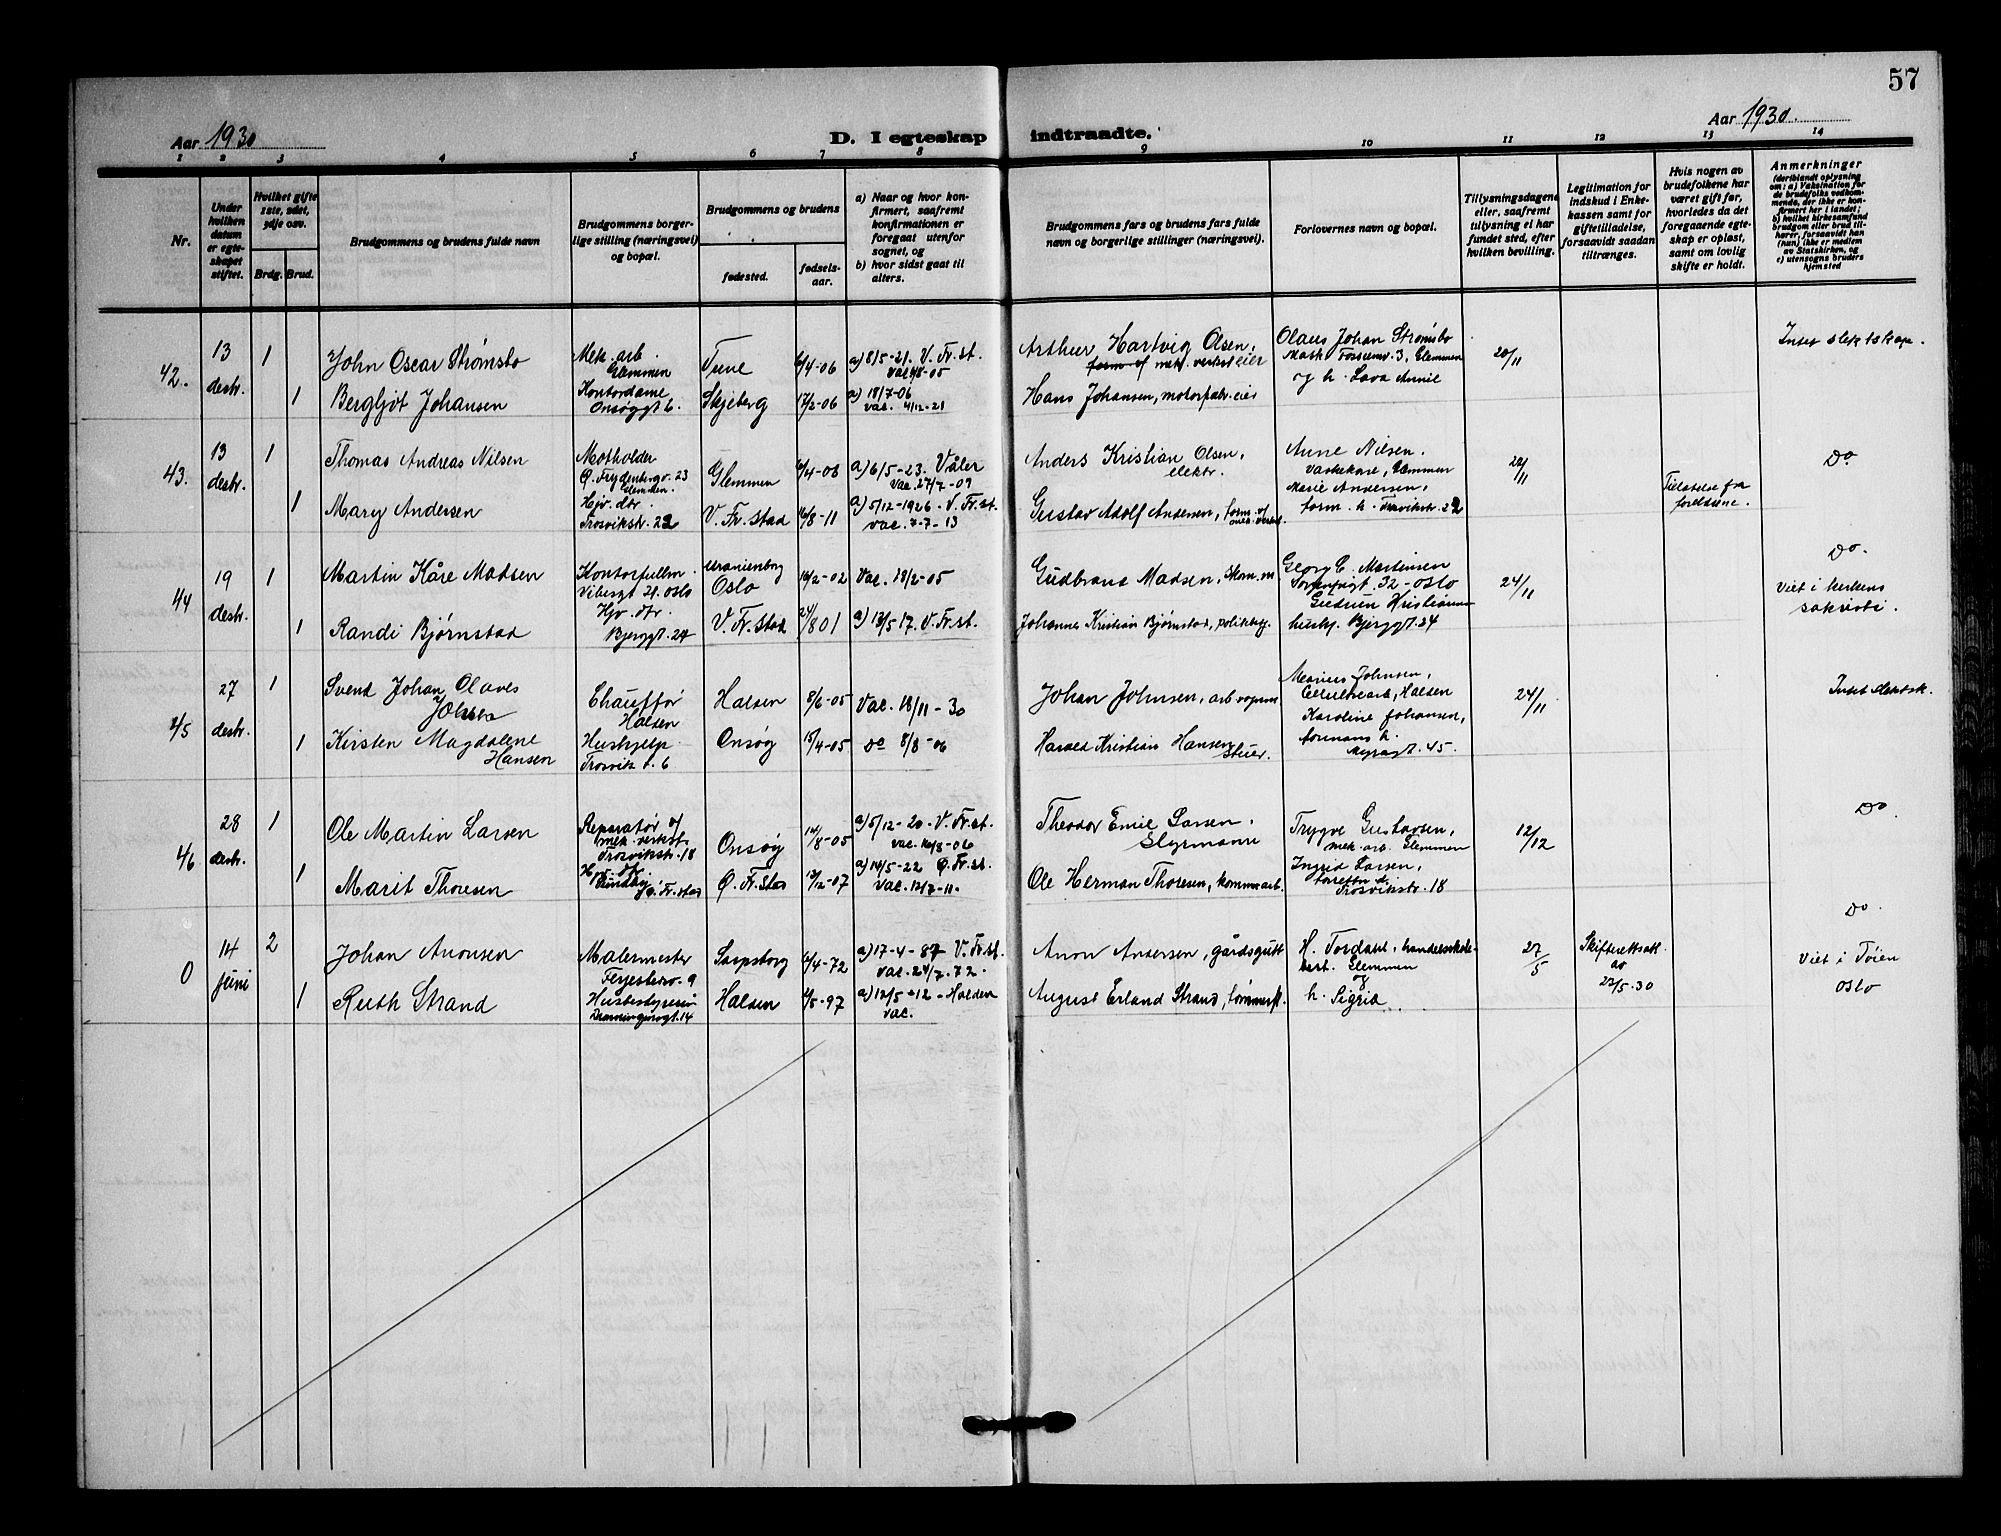 57
Aar 1930
D. I egteskap indtraadte.
Aar 1930.
1 2 3 4 5 6 7 8 9 10 11 12 13 14
Nr.
Under hvilken datum er egteskapet stiftet.
Hvilket gifte 1ste, 2det, 3dje osv.
Brdg. Brud.
Brudgommens og brudens fulde navn
Brudgommens borgerlige stilling (næringsvei) og bopæl.
Brudgommens og brudens
fødested.
fødselsaar.
a) Naar og hvor konfirmert, saafremt konfirmationen er foregaat utenfor sognet, og
b) hvor sidst gaat til alters.
Brudgommens fars og brudens fars fulde navn og borgerlige stillinger (næringsvei).
Forlovernes navn og bopæl.
Tillysningsdagene eller, saafremt tillysning ei har fundet sted, efter hvilken bevilling.
Legitimation for indskud i Enkekassen samt for giftetilladelse, forsaavidt saadan tiltrænges.
Hvis nogen av brudefolkene har været gift før, hvorledes da det foregaaende egteskap er opløst, samt om lovlig skifte er holdt.
Anmerkninger
(deriblandt oplysning om: a) Vaksination for de brudefolks vedkommende, der ikke er konfirmert her i landet; b) hvilket kirkesamfund brudgom eller brud tilhører, forsaavidt han (hun) ikke er medlem av Statskirken, og c) utensogns bruders hjemsted
42.
13 desbr.
1
John Oscar Strømsbo
Mek. arb.
Glemmen
Tune
6/4-06
a) 8/5-21. V. Fr.st.
Arthur Hartvig Olsen,
form. of mek. verkst eier
Olaus Johan Strømsbo
Glemmen
og h. Lova Annie
20/11
Intet slektskap.
1
Bergljot Johansen
Kontordame
Onsøgt 6.
Skjeberg
17/2-06
a) 18/7-06
vac. 4/12-21
Hans Johansen, motorfabr. eier
43.
13 desbr.
1
Thomas Andreas Nilsen
Motholder
Glemmen.
Glemmen
6/4-08
a) 6/5-23. Våler
Vac. 27/7-09
Anders Kristian Olsen,
elektr.
Anne Nilsen.
Vaskekone, Glemmen
Marie Andersen,
form. h. Trosvikstr. 22
20/11
Tilatelse fra
foreldrene.
Do
1
Mary Andersen
Hjv. dtr.
Trosvikstr. 22
V. Fr. stad
16/8-11
a) 5/12-1926. V. Fr. st.
vac. 7-7-13
Gustav Adolf Andersen, form. of
mek. verkst.
44
19 desbr.
1
Martin Kåre Madsen
Kontorfullm.
Vibesgt 21. Oslo
Uranienborg
Oslo
16/2-02
Vac. 18/2-05
Gudbrand Madsen, skom. m
Georg C. Martinsen
Sorgenfrigt. 32-Oslo
Gudrun Kristiansen
hushj. Bjerggt. 24
24/11
Do.
Viet i kirkens
sakristi.
1
Randi Bjørnstad
Hjv. dtr.
Bjerggt. 24
V. Fr. Stad
24/8 01
a) 13/5 17. V. Fr. st.
Johannes Kristian Bjørnstad, politibetj.
45
27 desbr.
1
Svend Johan Olaves
Johnsen
Chauffør
Halsen
Halsen
8/6-05
Vac. 18/11-30
Johan Johnsen, arb.
Marius Johnsen,
Cellulosearb., Halsen
Karoline Johansen,
formans h.
Myragt. 45.
24/11
Intet slektsk.
1
Kirsten Magdalene
Hansen
Hushjelp
Trosvik v. 6
Onsøy
15/4-05
Do 8/8-06
Harald Kristian Hansen
stuer.
46
28 desbr.
1
Ole Martin Larsen
Reparatør of
mek. verkst.
Trosvikstr. 18
Onsøy
14/8-05
a) 5/12-20. V. Fr. st.
vac. 16/8-06
Theodor Emil Larsen,
Styrmann
Trygve Gustavsen,
mek. arb. Glemmen
Ingrid Larsen,
Trosvikstr. 18
12/12
Do
1
Marit Thoresen
Hjv. dtr.
Ø. Fr. stad
Ø. Fr. Stad
13/12-07
a) 14/5-22 Ø. Fr. st.
Vac. 12/7-11.
Ole Herman Thoresen, kommearb.
0
14 juni
2
Johan Anonsen
Malermester
Ferjestedsv. 9
Sarpsborg
6/4-72
a) 17-4-87 V. Fr. st.
Vac. 24/7.72.
Anon Andersen, gårdsgutt
H. Tordahl, handelsskolebest. Glemmen
og
h. Sigrid
27/5
Skifterettsatt.
av
22/5.30
Do.
Viet i Tøien
Oslo
1
Ruth Strand
Husbestyrerin
Dronningensgt. 14
Halsen
6/5-97
a) 12/5-12-Halden
vac.
August Erland Strand, tømmerk.